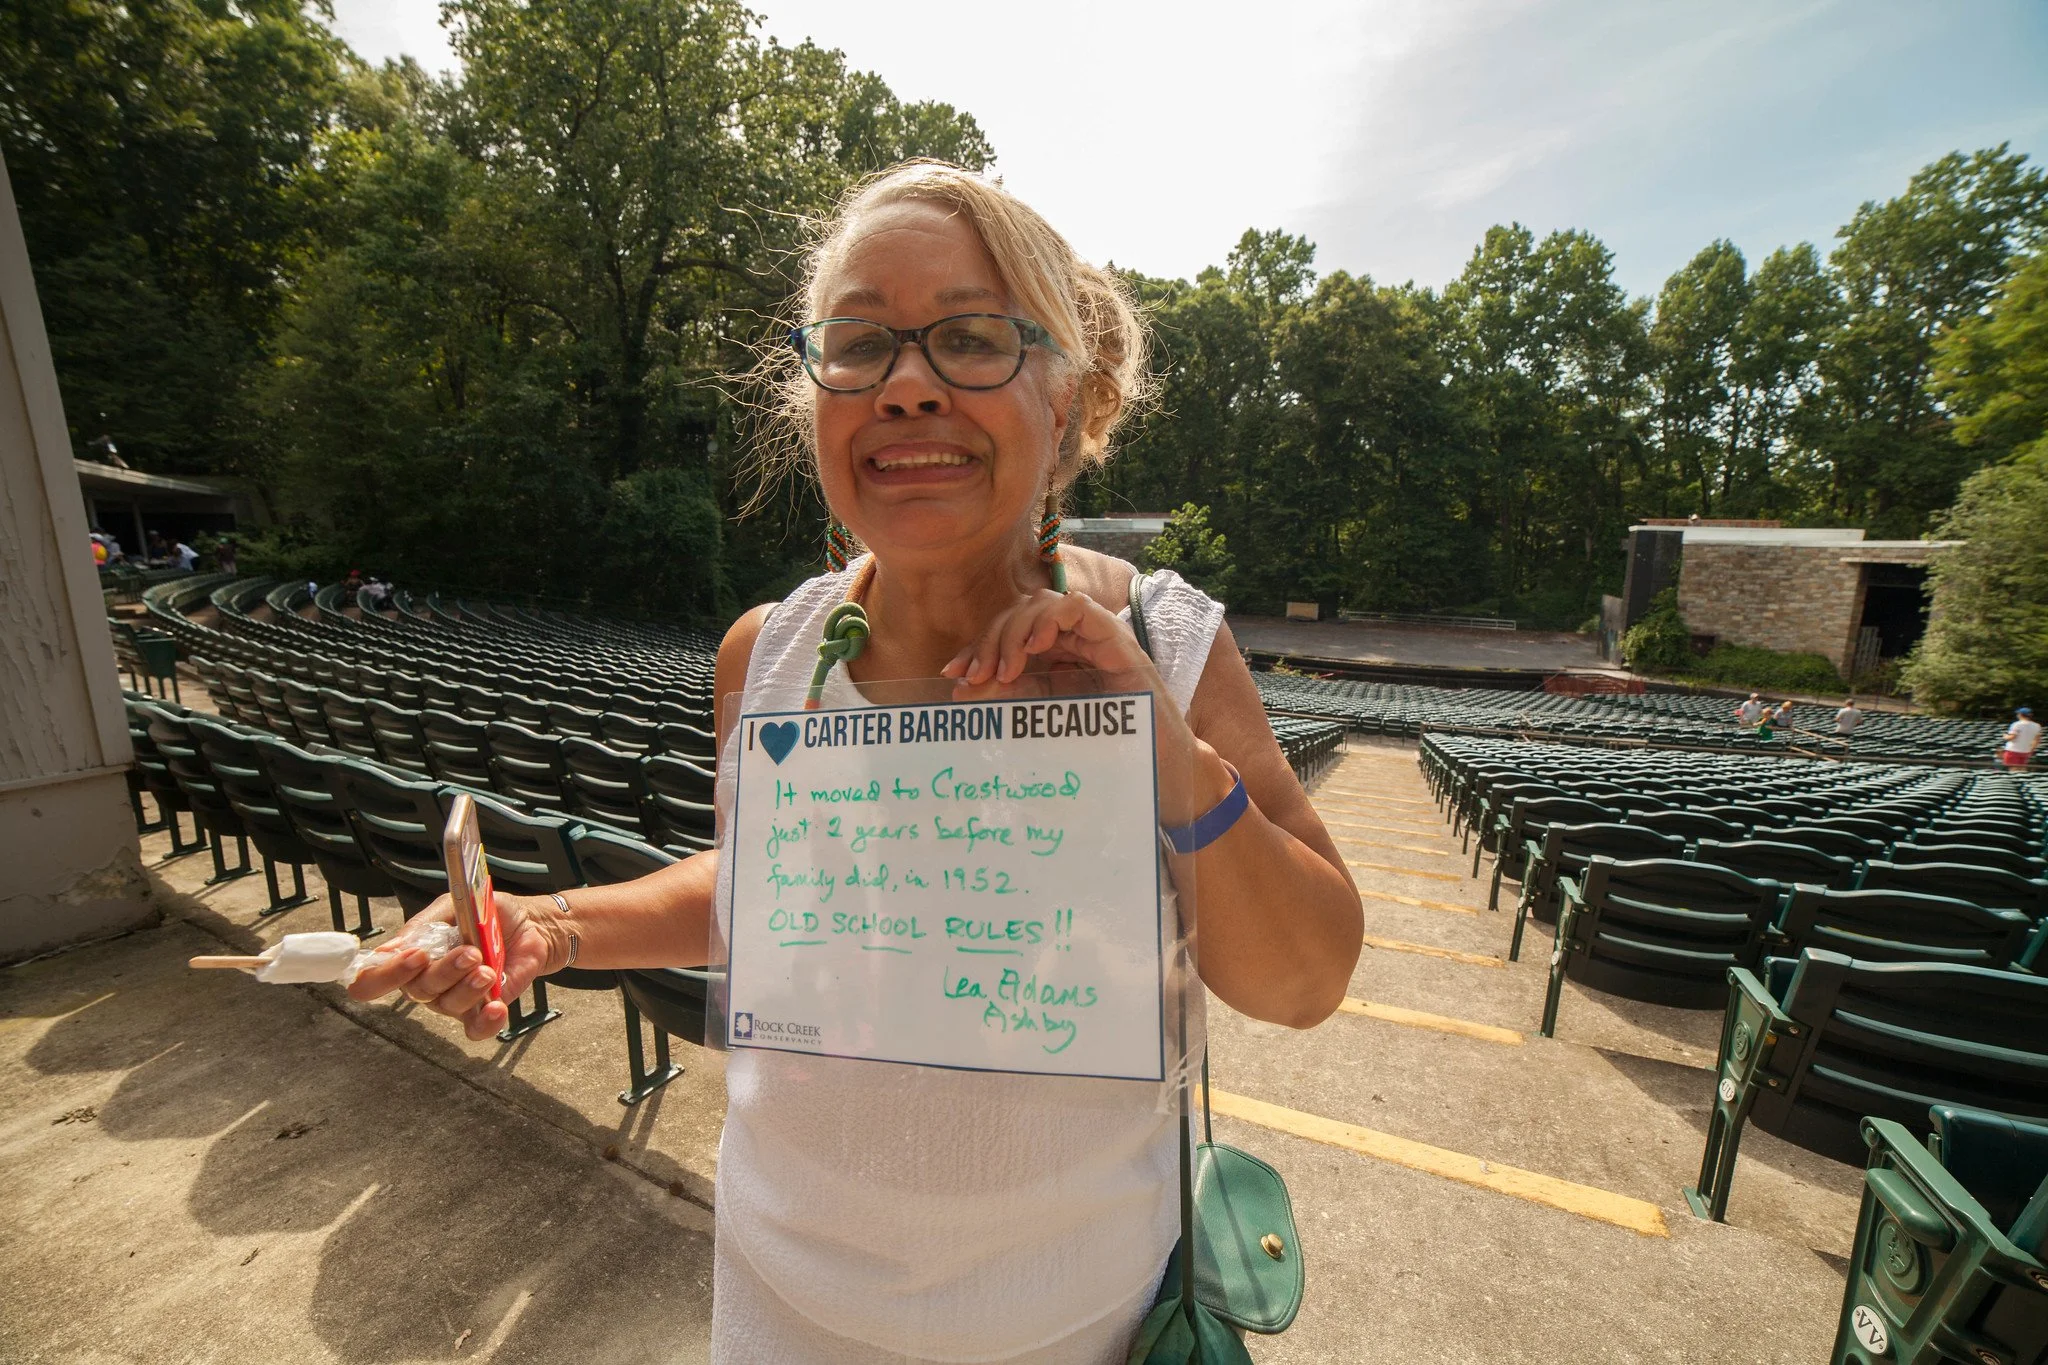 I ♥ CARTER BARRON BECAUSE
It moved to Crestwood
just 2 years before my
family did, in 1952.
OLD SCHOOL RULES!!
Lea Adams
Ashby
ROCK CREEK
CONSERVANCY
VV